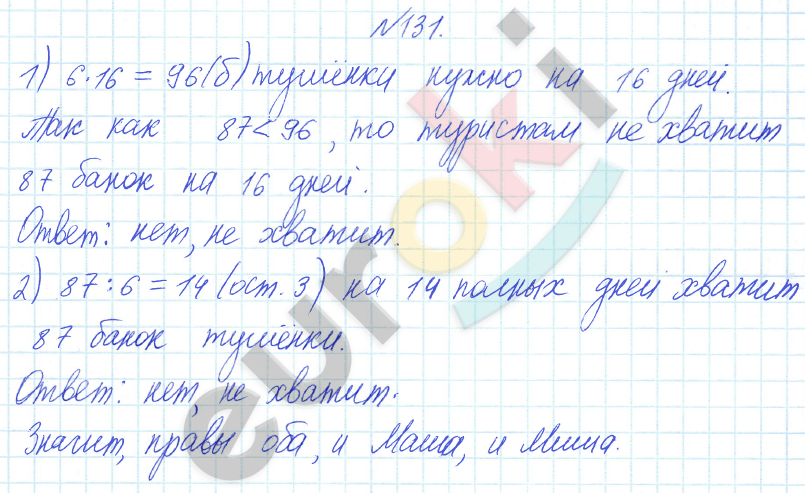 №131.
1) 6·16 = 96(б) тушёнки нужно на 16 дней.
Так как 87<96, то туристам не хватит
87 банок на 16 дней.
Ответ: нет, не хватит.
2) 87:6=14 (ост. 3) на 14 полных дней хватит
87 банок тушёнки.
Ответ: нет, не хватит.
Значит, правы оба, и Маша, и Миша.
euroki